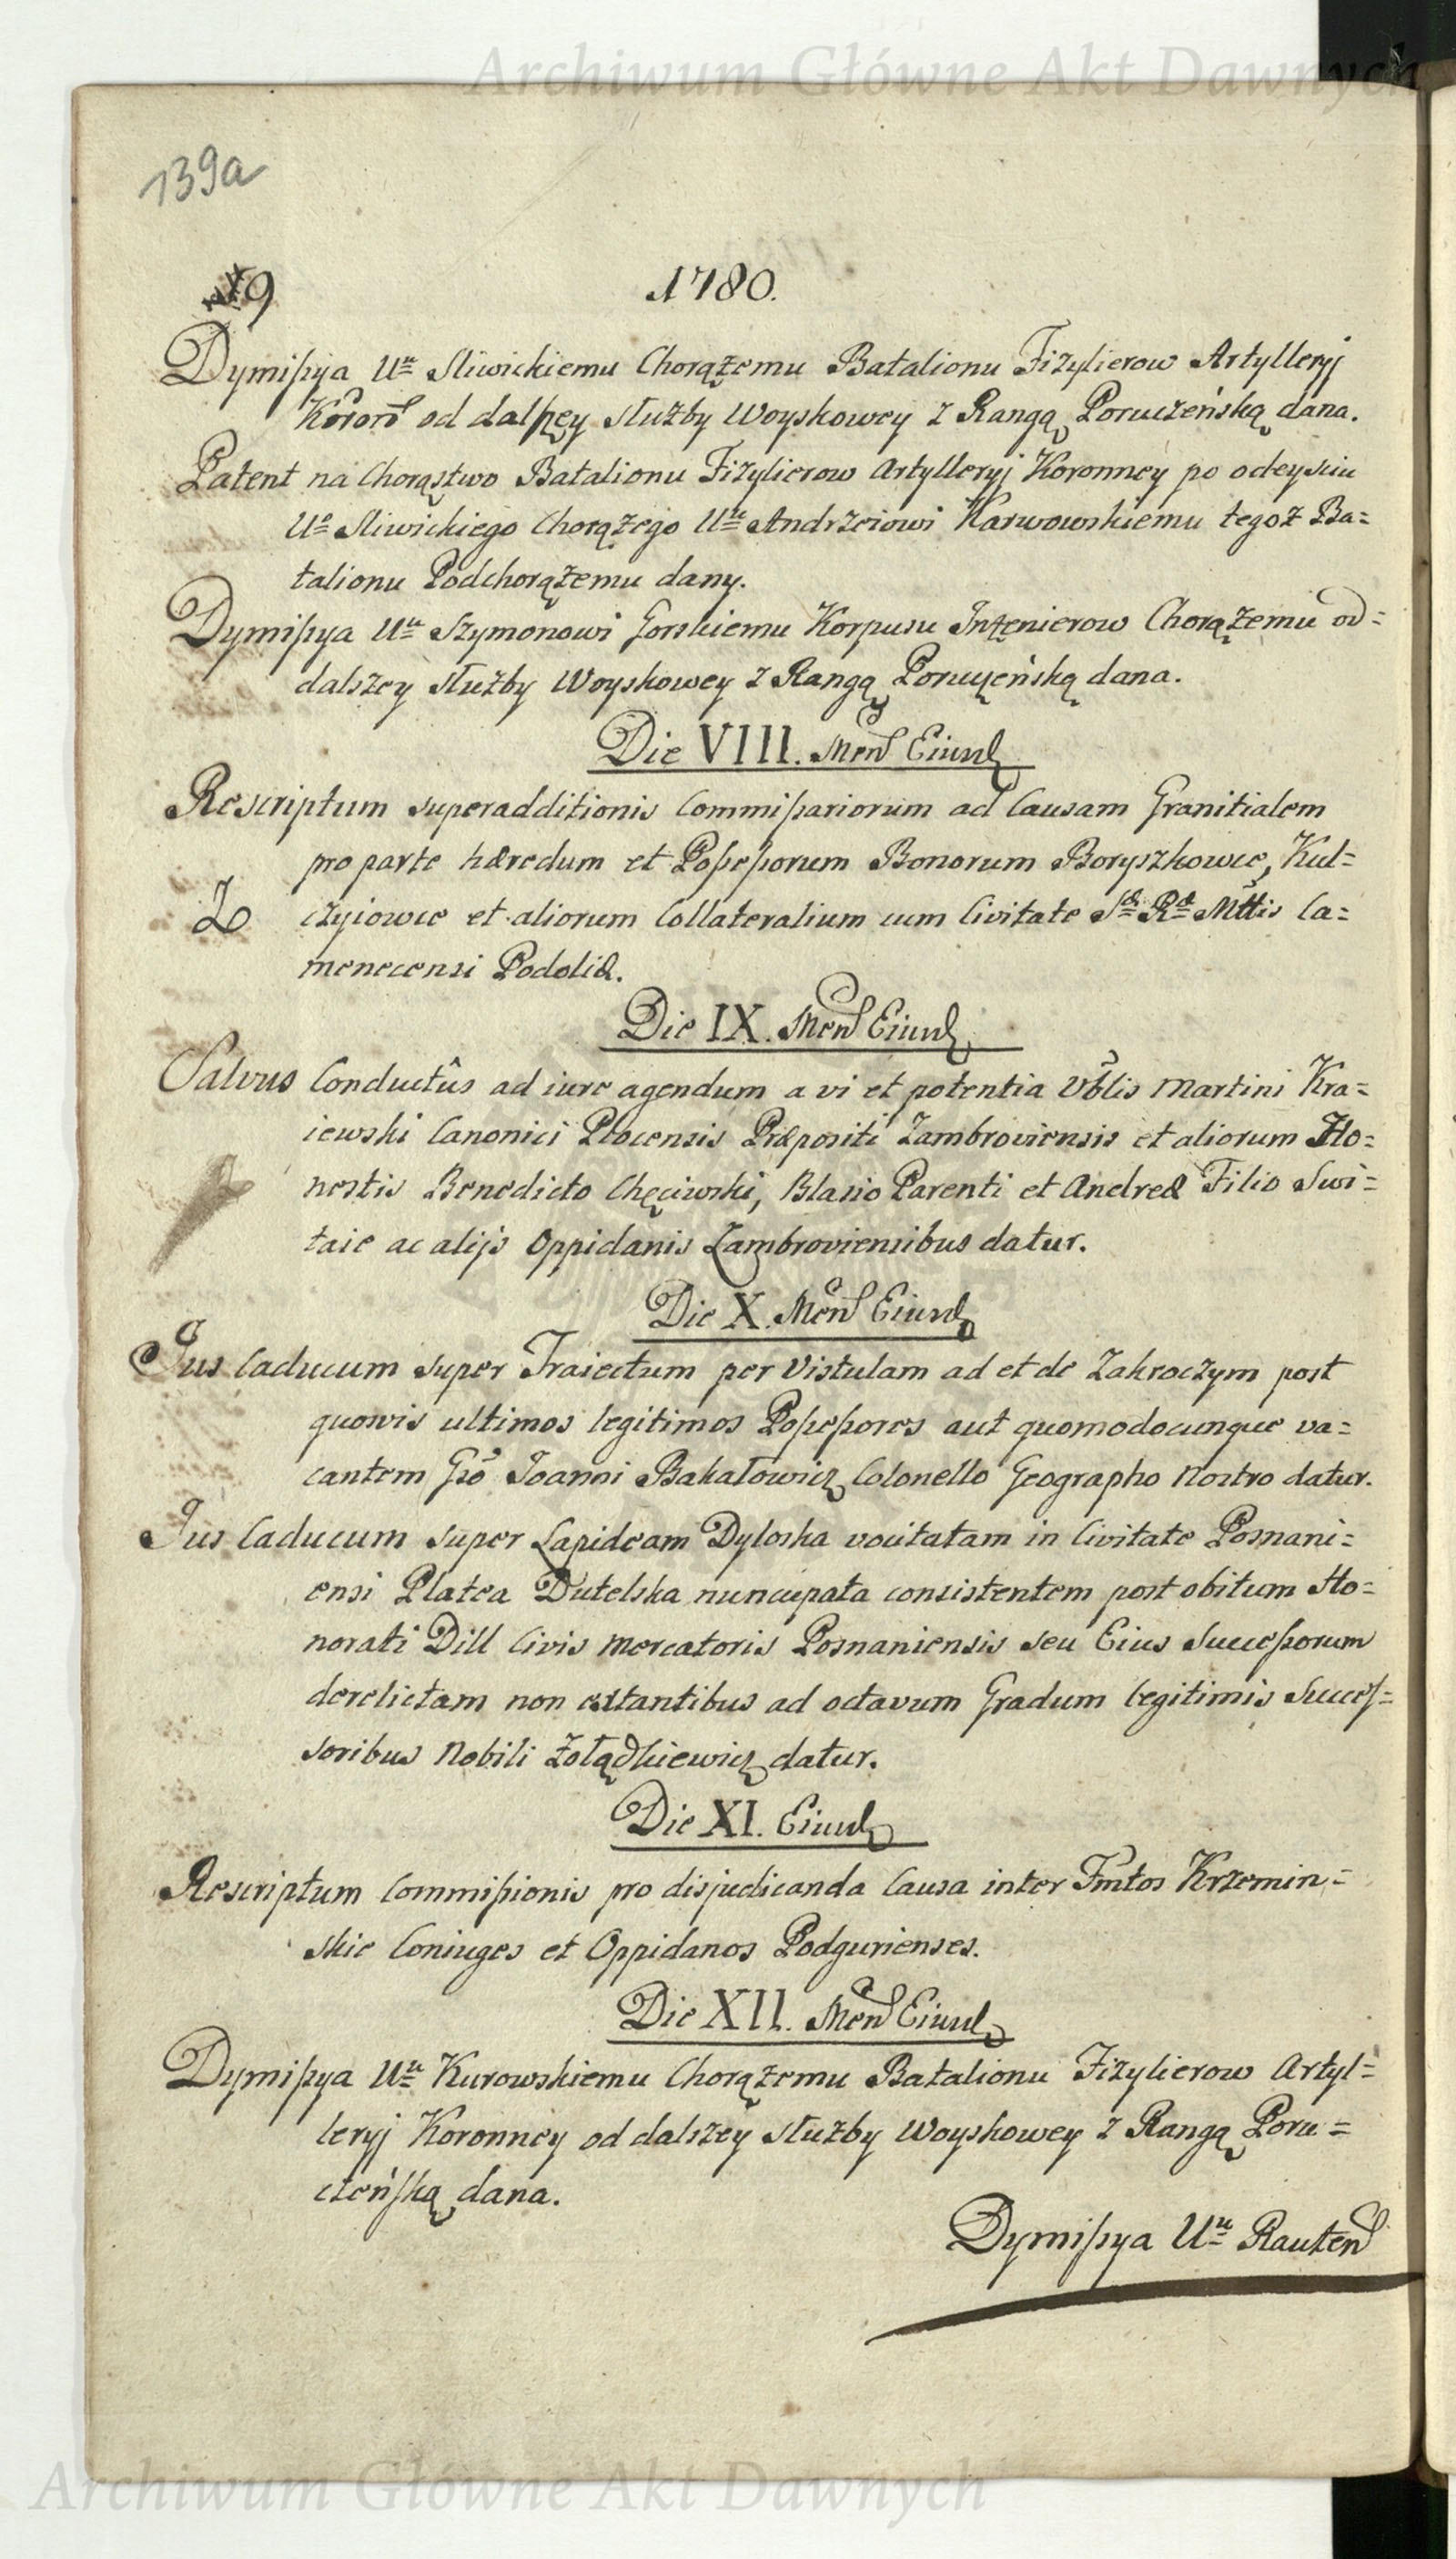 Archiwum Główne Akt Dawnych
139a
9
1780.
Dymissya Ur̃u Sliwickiemu Chorążemu Batalionu Fizylierow Artylleryj
Koron̄ od dalszey służby Woyskowey z Rangą Poruczeńską dana.
Patent na Chorąstwo Batalionu Fizylierow Artylleryj Koronney po odeysciu
Uo Sliwickiego Chorążego Uu Andrzeiowi Karwowskiemu tegoż Ba=
talionu Podchorążemu dany.
Dymissya Uu Szymonowi Gorskiemu Korpusu Inżenierow Chorążemu od=
dalszey służby Woyskowey z Rangą Poruczeńską dana.
Die VIII. Men Eiusd
Rescriptum superadditionis Commissariorum ad Causam Granitialem
pro parte hæredum et Possessorum Bonorum Boryszkowce, Kul=
czyiowce et aliorum Collateralium cum Civitate Sæ Ræ Mttis Ca=
menecensi Podoliæ.
Die IX. Men Eiusd
Salvus Conductûs ad iure agendum a vi et potentia Vblis Martini Kra=
iewski Canonici Plocensis Præpositi Zambroviensis et aliorum Ho=
nestis Benedicto Chęciwski, Blasio Parenti et Andreæ Filio Swi=
taie ac alijs Oppidanis Zambroviensibus datur.
Die X. Men Eiusd
Jus Caducum super Traiectum per Vistulam ad et de Zakroczym post
quovis ultimos legitimos Possessores aut quomodocunque va=
cantem Gso Joanni Bakałowicz Colonello Geographo Nostro datur.
Jus Caducum super Lapideam Dyloska vocitatam in Civitate Posnani=
ensi Platea Dutelska nuncupata consistentem post obitum Ho=
norati Dill Civis Mercatoris Posnaniensis seu Eius Successorum
derelictam non extantibus ad octavum Gradum legitimis Succes=
soribus Nobili Żołądkiewicz datur.
Die XI. Eiusd
Rescriptum Commissionis pro disjudicanda Causa inter Fmtos Krzemin=
skie Coniuges et Oppidanos Podgurienses.
Die XII. Men Eiusd
Dymissya Uu Kurowskiemu Chorążemu Batalionu Fizylierow Artyl=
leryj Koronney od dalszey służby Woyskowey z Rangą Poru=
czeńską dana.
Dymissya Uu Rauten
Archiwum Główne Akt Dawnych